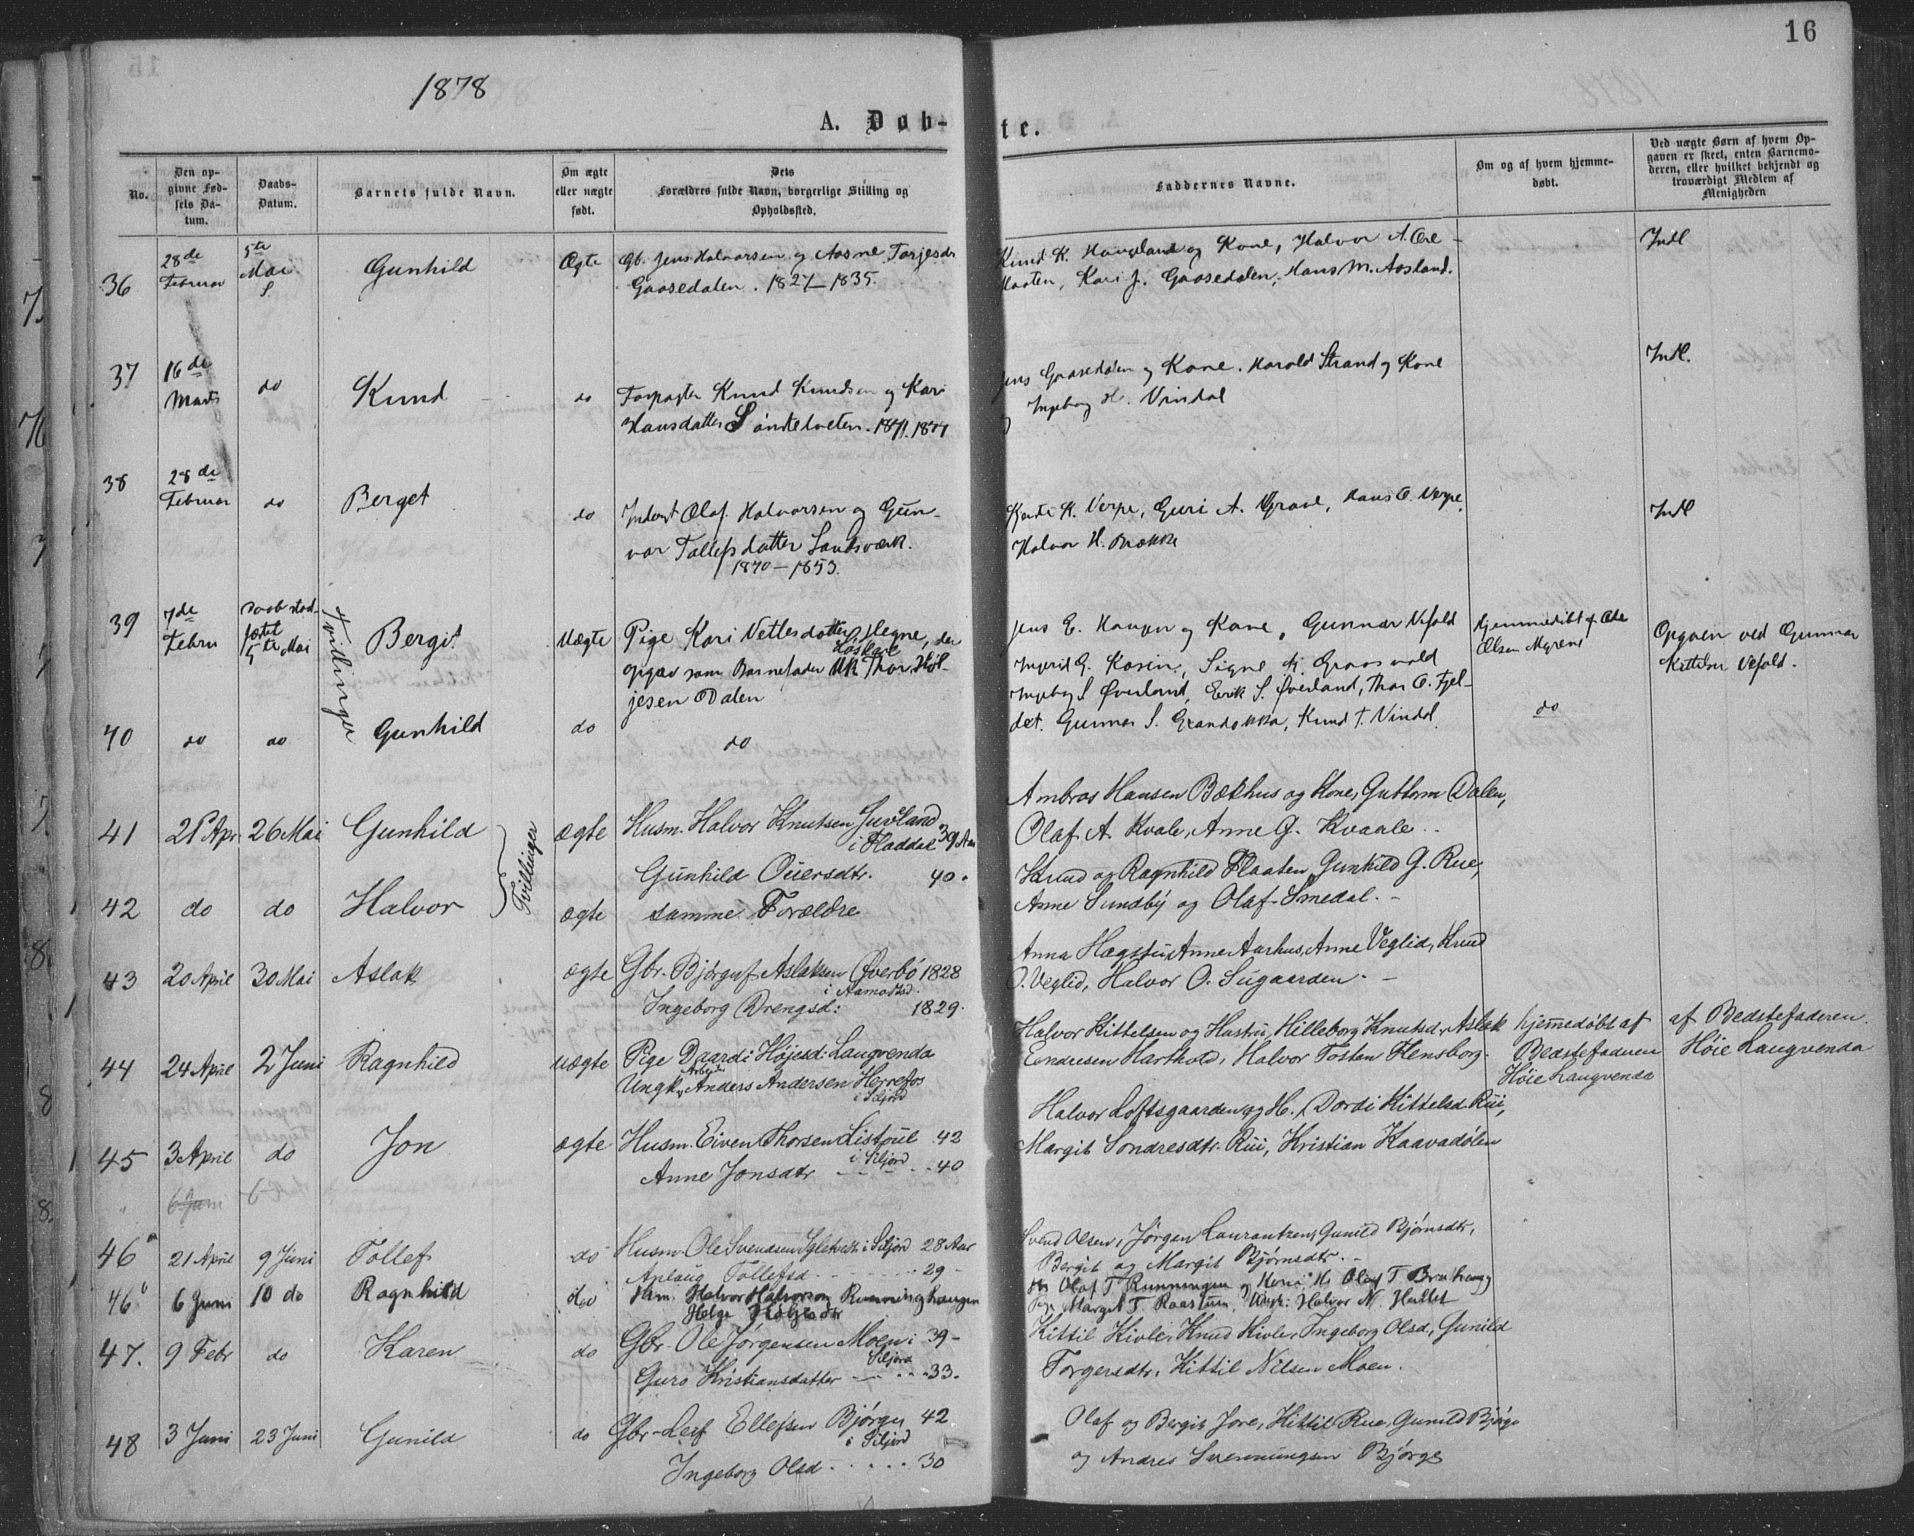 16
1878
A. Døb-
te.
No.
Den op-
givne Fød-
sels Da-
tum.
Daabs-
Datum.
Barnets fulde Navn.
Om ægte
eller uægte
født.
Dets
Forældres fulde Navn, borgerlige Stilling og
Opholdssted.
Faddernes Navne.
Om og af hvem hjemme-
døbt.
Ved uægte Børn af hvem Op-
gaven er skeet, enten Barnemo-
deren, eller hvilket bekjendt og
troværdigt Medlem af
Menigheden
36
28de
Februar
5te
Mai
Gunhild
Ægte
Gb. Jens Halvorsen og Aasne Torjesdr
Gaasedalen. 1827–1835.
Knud K. Haugland og Kone, Halvor A.
Kari J. Gaasedalen, Hans M. Aasland.
Indl
37
16de
Marts
do
Knud
do
Forpagter Knud Knudsen og Kari
Hansdatter
Jens Gaasedalen og Kone. Harold Strand og Kone
og Ingeborg H. Vindal
Indl.
38
28de
Februar
do
Berget
do
Inderst Olaf Halvorsen og Gun-
vor Tollefsdatter Landsværk.
1853.
K. Verpe, Guri A. Grave, Hans O. Verpe,
Halvor H. Brække
Indl
39
7de
Febru
Daab stad-
fæstet
5te Mai
Tvillinger
Bergit
Uægte
Pige Kari Vetlesdatter Hegne, der
opgav som Barnefader UK Thor Høl-
jesen Dalen
Jens E. Haugen og Kone, Gunnar Vefald
Ingerid G. Kasin, Signe K. Graasvold
Hjemmedøbt af Ole
Olsen Myrene
Opgaven ved Gunnar
Kittilsen Vefald.
40
do
do
Gunhild
do
do
Ingeborg S. Øverland, Eirik S. Øverland, Thor O. Fjel-
det. Gunnar S. Grandokka, Knud T. Vindal
do
41
21 Apr
26 Mai
Gunhild
Tvillinger
ægte
Husm. Halvor Knutsen Juvland
i Haddal 39 Aar
Gunhild Ouersdtr. 40.
Ambros Hansen Bækhus og Kone, Guttorm Dalen,
Olaf A. Kvale, Anne G. Kvaale..
42
do
do
Halvor
ægte
samme Forældre
Knud og Ragnhild Flaaten, Gunhild G. Rue,
Asne Sundby og Olaf Smedal.-
43
20 April
30 Mai
Aslak
ægte
Gbr. Bjørguf Aslaksen Øverbö 1828
i Aamotsd.
Ingeborg Drengsd: 1829.
Anna Hægstu, Anne Aarhus, Anne Veglid, Knud
O. Veglid, Halvor O. Sugaarden.-
44
24 April
2 Juni
Ragnhild
uægte
Pige Daardi Højesd: Laugvenda
Ungk. Arbeid. Anders Andersen Herrefos
i Siljord
Halvor Kittelsen og Hustru, Hilleborg Knutsd, Aslak
Endresen Harthold, Halvor Tostan Flensborg.
hjemmedøbt af
Bedstefaderen
Høie Laugvenda
af Bedstefaderen
Høie Laugvenda
45
3 April
do
Jon
ægte
Husm. Eiven Thorsen Listøul 42
i Siljord
Anne Jonsdtr 40
Halvor Loftsgaarden og H., Dordi Kittelsd. Rui,
Margit Sondresdtr. Rui, Kristian Kaavadølen
6 Juni
46a
21 April
9 Juni
Tollef
do
Husm. Ole Svendsen i Siljord 28 Aar
Aplaug Tollefsd. 29 -
Svend Olsen, Jørgen Laurantzen, Gunild Bjørnsdtr,
Bergit og Margit Bjørnsdtr.-
46b
6 Juni
10 do
Ragnhild
do
Hsm. Halvor Halvorson Runninghaugen
Helge
Olaf T. Runningen og Kone, Olaf T. Brukaas
Pige Margit T. Raastuen, Ungk: Halvor N. Hallet
47.
9 Febr
do
Karen
do
Gbr. Ole Jørgensen Moen: 39-
Siljord
Guro Kristiansdatter 33.
Kittil Kivle, Knud Kivle, Ingeborg Olsd, Gunild
Torgersdtr, Kittil Nilsen Moen.
48
3 Juni
23 Juni
Gunild
do
Gbr. Leif Ellefsen Bjørge 42
i Siljord
Ingeborg Olsd. 30
Olaf og Bergit Jore, Kittil Rue, Gunild Bjørge
og Andres Sveinungsen Bjørge